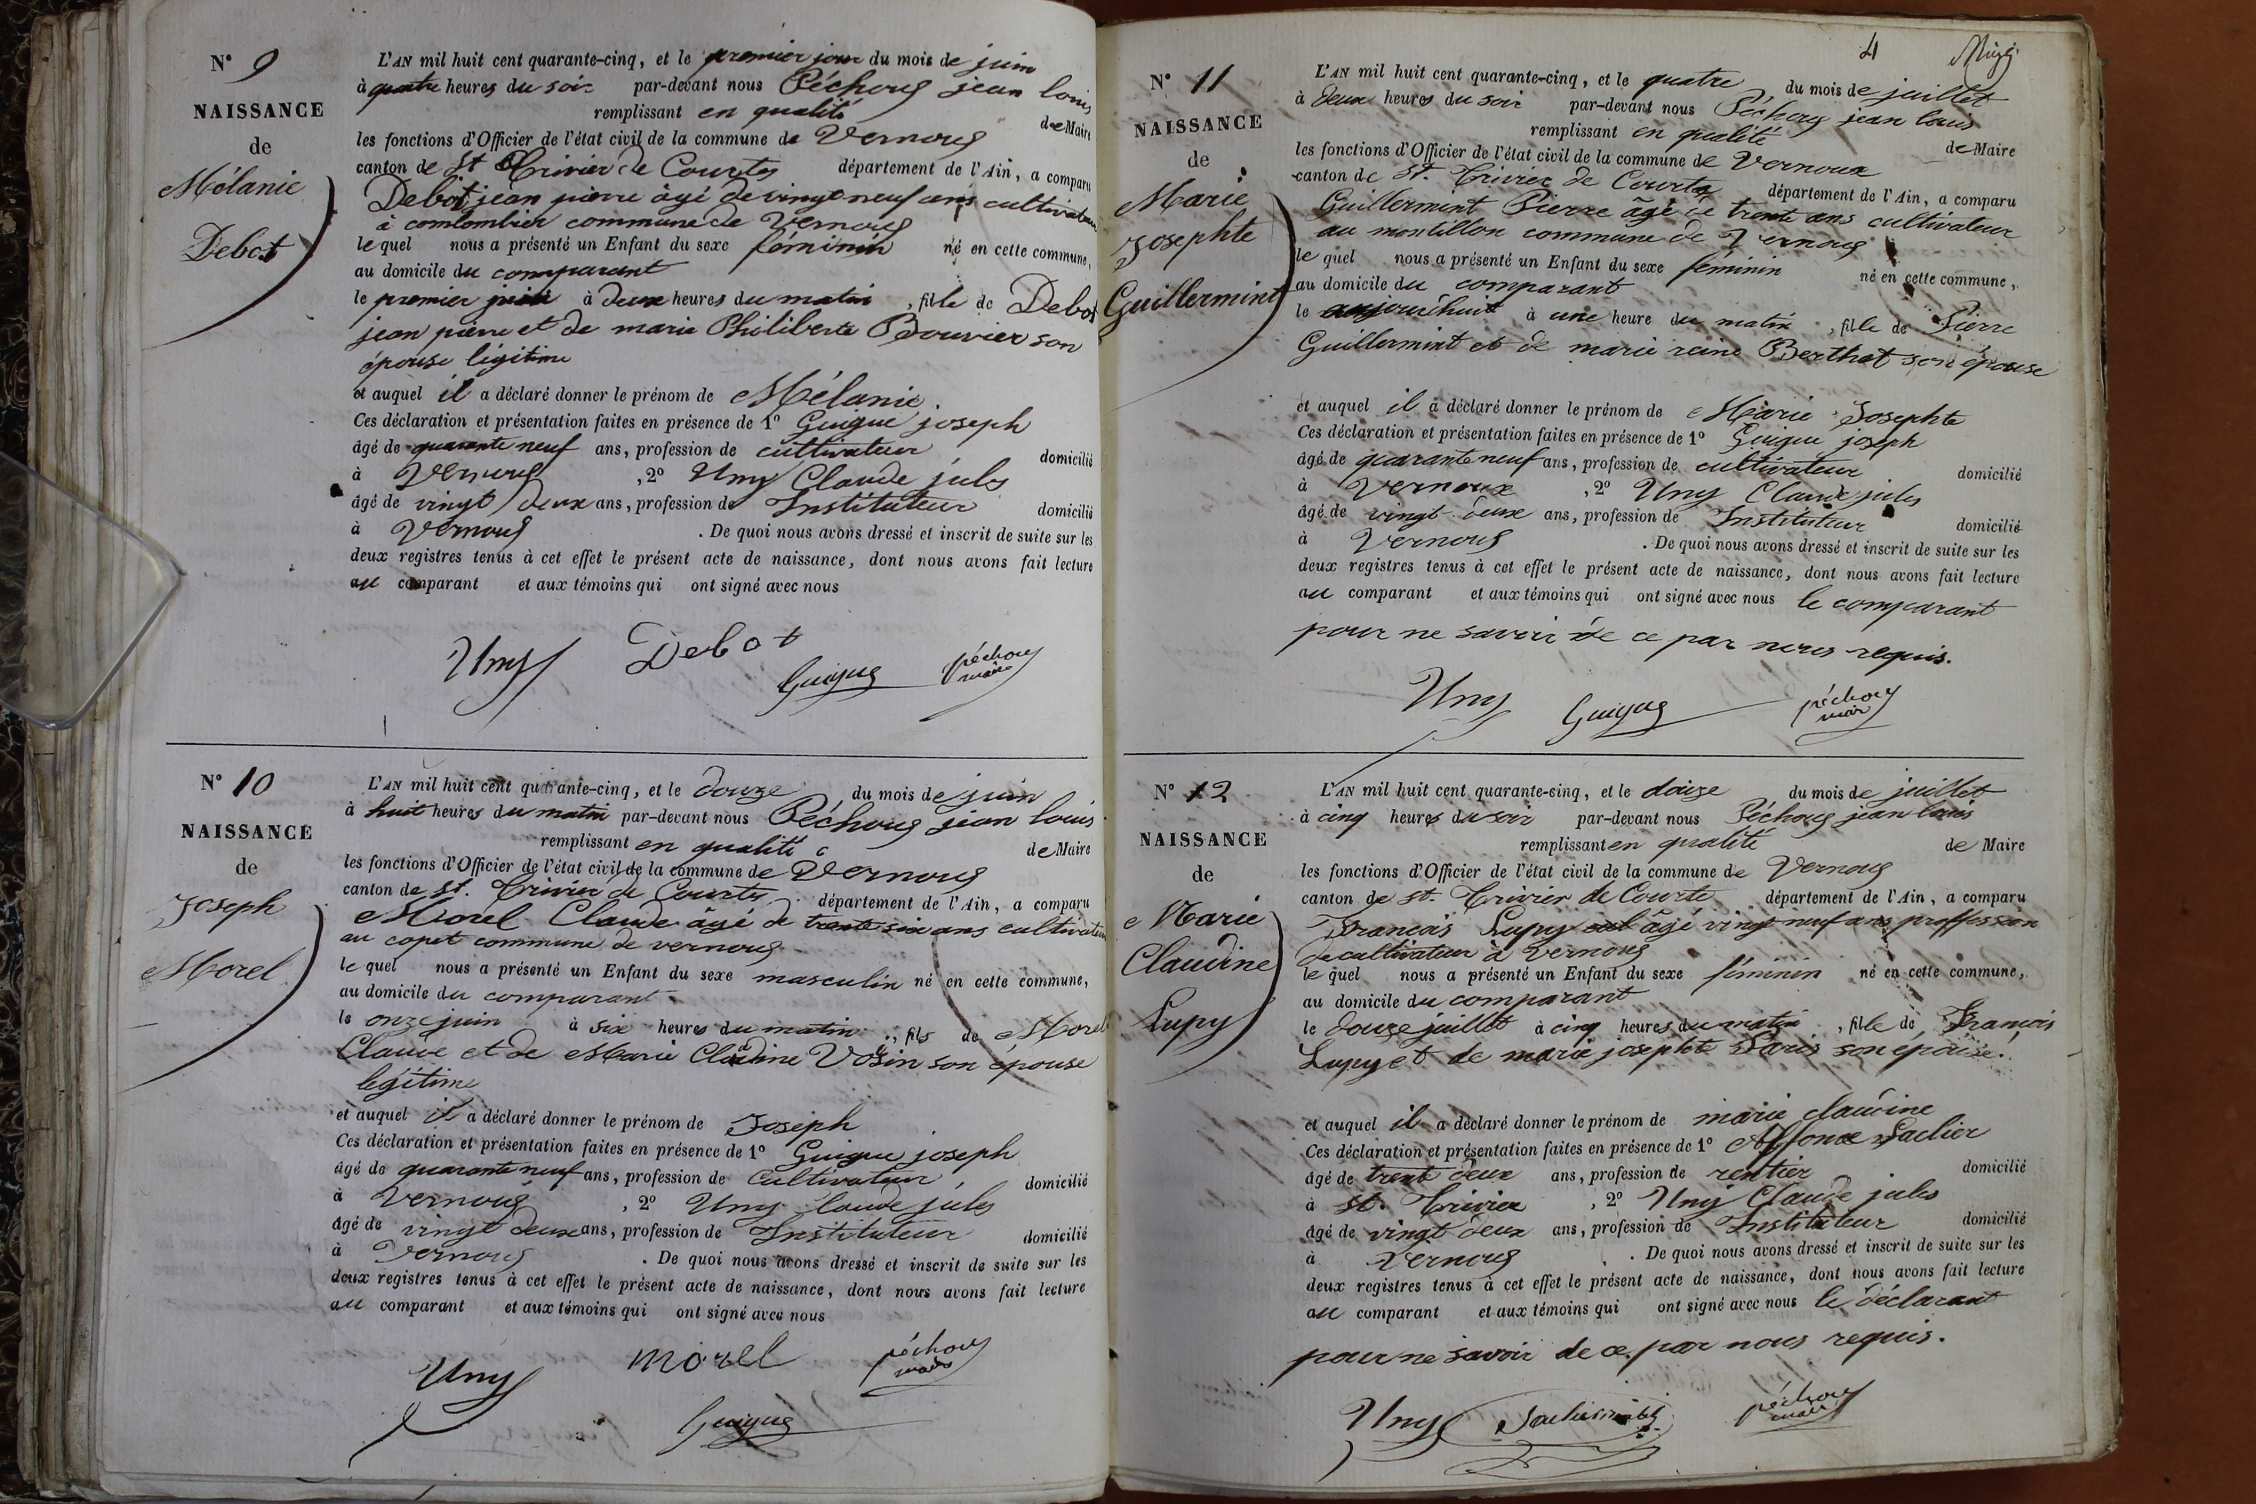 N° 9
NAISSANCE
de
Mélanie
Debot
L'AN mil huit cent quarante-cinq, et le premier jour du mois de juin
à quatre heures du soir par-devant nous Péchoux jean louis
remplissant en qualité de Maire
les fonctions d'Officier de l'état civil de la commune de Vernoux
canton de St Trivier de Courtes département de l'Ain, a comparu
Debot jean pierre âgé de vingt neuf ans cultivateur
à commune de Vernoux
le quel nous a présenté un Enfant du sexe féminin né en cette commune,
au domicile du comparant
le premier juin à deux heures du matin, fille de Debot
jean pierre et de marie Philiberte Bouvier son
épouse légitime
et auquel il a déclaré donner le prénom de Mélanie.
Ces déclaration et présentation faites en présence de 1° Guigue joseph
âgé de quarante neuf ans, profession de cultivateur domicilié
à Vernoux, 2° Uny Claude jules
âgé de vingt deux ans, profession de Instituteur domicilié
à Vernoux. De quoi nous avons dressé et inscrit de suite sur les
deux registres tenus à cet effet le présent acte de naissance, dont nous avons fait lecture
au comparant et aux témoins qui ont signé avec nous
Uny Debot Guigue péchoux
maire
N° 10
NAISSANCE
de
Joseph
Morel
L'AN mil huit cent quarante-cinq, et le douze du mois de juin
à huit heures du matin par-devant nous Péchoux jean louis
remplissant en qualité de Maire
les fonctions d'Officier de l'état civil de la commune de Vernoux
canton de St. Trivier de Courtes département de l'Ain, a comparu
Morel Claude âgé de trente six ans cultivateur
au copet commune de vernoux
le quel nous a présenté un Enfant du sexe masculin né en cette commune,
au domicile du comparant
le onze juin à six heures du matin, fils de Morel
Claude et de Marie Claudine Vosin son épouse
legitime
et auquel il a déclaré donner le prénom de Joseph
Ces déclaration et présentation faites en présence de 1° Guigue joseph
âgé de quarante neuf ans, profession de cultivateur domicilié
à Vernoux, 2° Uny Claude jules
âgé de vingt deux ans, profession de Instituteur domicilié
à Vernoux. De quoi nous avons dressé et inscrit de suite sur les
deux registres tenus à cet effet le présent acte de naissance, dont nous avons fait lecture
au comparant et aux témoins qui ont signé avec nous
Uny morel péchoux
maire
Guigue
4
N° 11
NAISSANCE
de
Marie
Josephte
Guillermint
L'AN mil huit cent quarante-cinq, et le quatre du mois de juillet
à deux heures du soir par-devant nous Péchoux jean louis
remplissant en qualité de Maire
les fonctions d'Officier de l'état civil de la commune de Vernoux
canton de St. Trivier de Courtes département de l'Ain, a comparu
Guillermint Pierre âgé de trente ans cultivateur
au montillon commune de Vernoux
le quel nous a présenté un Enfant du sexe féminin né en cette commune,
au domicile du comparant
le aujourd'huit à une heure du matin, fille de Pierre
Guillermint et de marie reine Berthet son épouse
et auquel il a déclaré donner le prénom de Marie Josephte
Ces déclaration et présentation faites en présence de 1° Guigue joseph
âgé de quarante neuf ans, profession de cultivateur domicilié
à Vernoux, 2° Uny Claude jules
âgé de vingt deux ans, profession de Instituteur domicilié
à Vernoux. De quoi nous avons dressé et inscrit de suite sur les
deux registres tenus à cet effet le présent acte de naissance, dont nous avons fait lecture
au comparant et aux témoins qui ont signé avec nous le comparant
pour ne savoir de ce par nous requis.
Uny Guigue péchoux
maire
N° 12
NAISSANCE
de
Marie
Claudine
Lupy
L'AN mil huit cent quarante-cinq, et le douze du mois de juillet
à cinq heures du soir par-devant nous Péchoux jean louis
remplissant en qualité de Maire
les fonctions d'Officier de l'état civil de la commune de Vernoux
canton de St. Trivier de Courte département de l'Ain, a comparu
François Lupy âgé vingt neuf ans proffession
de cultivateur à Vernoux
le quel nous a présenté un Enfant du sexe féminin né en cette commune,
au domicile du comparant
le douze juillet à cinq heures du matin, fille de François
Lupy et de marie josephte Paris son épouse.
et auquel il a déclaré donner le prénom de marie claudine
Ces déclaration et présentation faites en présence de 1° Alfonce
âgé de trente deux ans, profession de rentier domicilié
à St. Trivier, 2° Uny Claude jules
âgé de vingt deux ans, profession de Instituteur domicilié
à Vernoux. De quoi nous avons dressé et inscrit de suite sur les
deux registres tenus à cet effet le présent acte de naissance, dont nous avons fait lecture
au comparant et aux témoins qui ont signé avec nous le déclarant
pour ne savoir de ce par nous requis.
Uny péchoux
maire